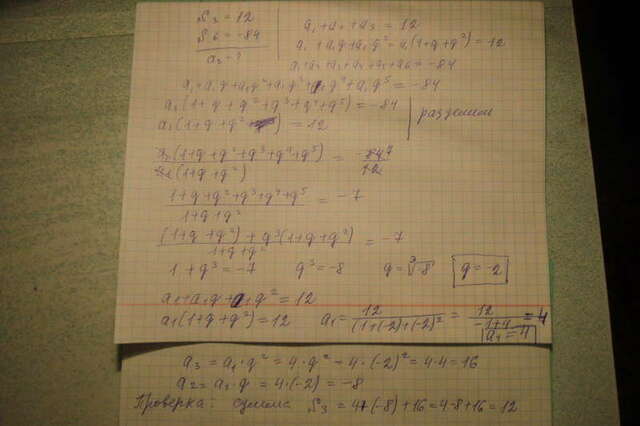 S₃ = 12
S₆ = -84
a₃ = ?
a₁ + a₂ + a₃ = 12
a₁ + a₁q + a₁q² = a₁(1+q+q²) = 12
a₁+a₂+a₃+a₄+a₅+a₆ = -84
a₁+a₁q+a₁q²+a₁q³+a₁q⁴+a₁q⁵ = -84
a₁(1+q+q²+q³+q⁴+q⁵) = -84
a₁(1+q+q²) = 12
разделим
a₁(1+q+q²+q³+q⁴+q⁵) / a₁(1+q+q²) = -84 7 / 12
1+q+q²+q³+q⁴+q⁵ / 1+q+q² = -7
(1+q+q²)+q³(1+q+q²) / 1+q+q² = -7
1+q³ = -7 q³ = -8 q = ³√-8 q = -2
a₁+a₁q+a₁q² = 12
a₁(1+q+q²) = 12 a₁ = 12 / (1+(-2)+(-2)² = 12 / -1+4 = 4
a₁ = 4
a₃ = a₁·q² = 4·q² = 4·(-2)² = 4·4 = 16
a₂ = a₁·q = 4·(-2) = -8
Проверка: сумма S₃ = 4+(-8)+16 = 4-8+16 = 12